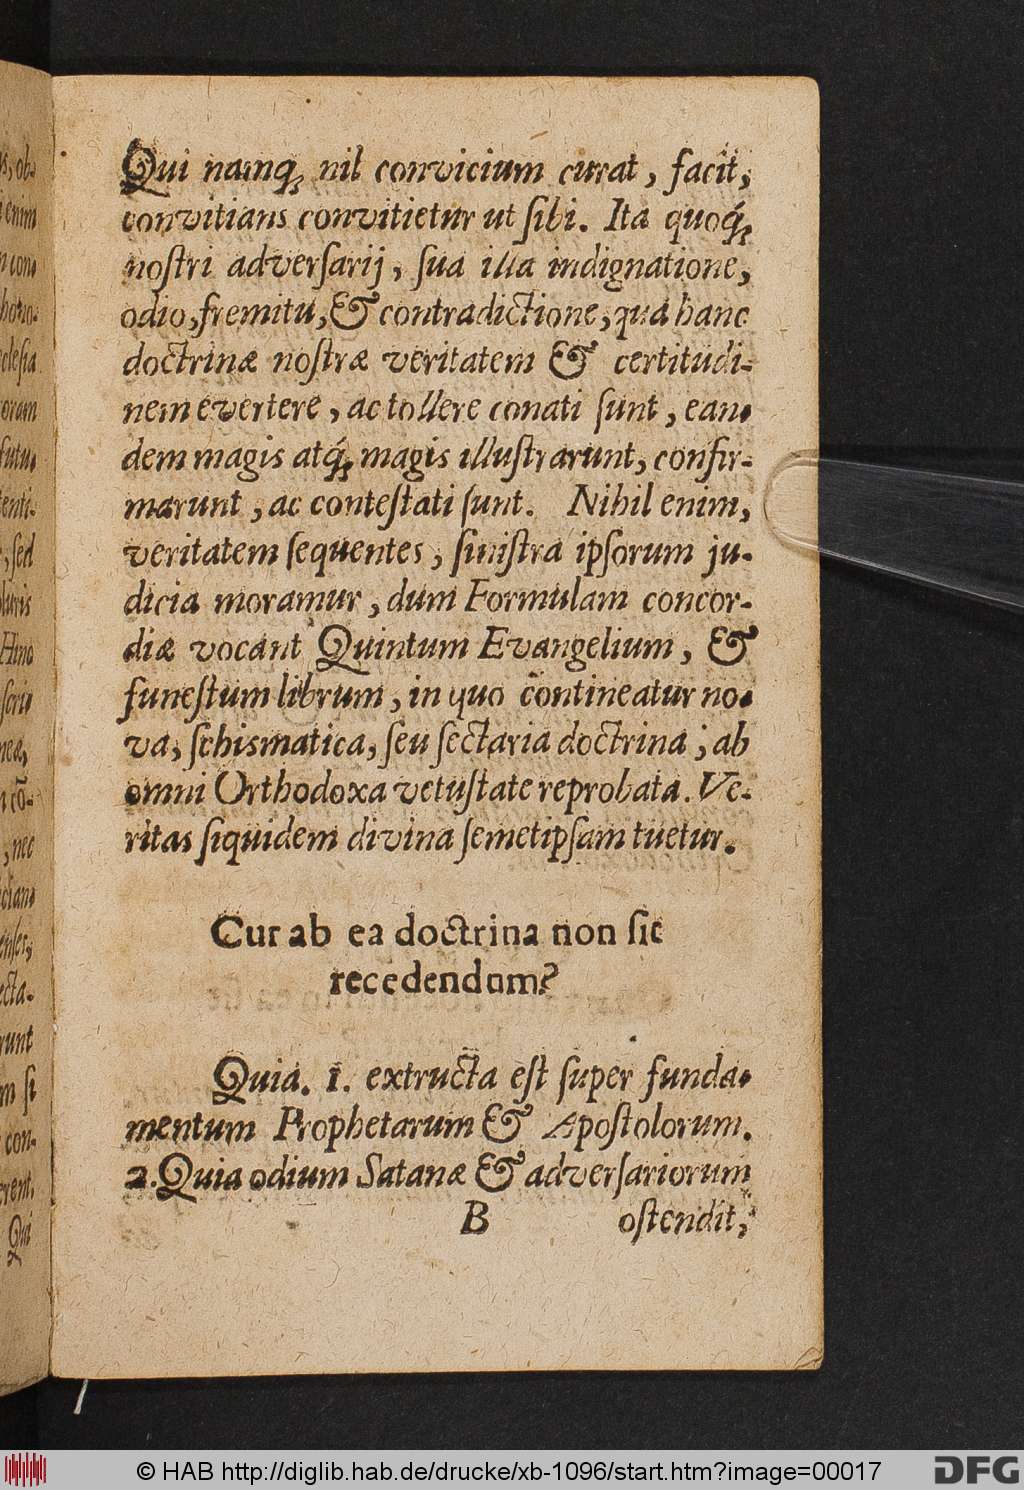 Qui namq́; nil convicium curat, facit,
convitians convitietur ut ſibi. Ita quoq́;
noſtri adverſarij, ſua illa indignatione,
odio, fremitu, & contradictione, qua hanc
doctrinæ noſtræ veritatem & certitudi-
nem evertere, ac tollere conati ſunt, ean-
dem magis atq́; magis illuſtrarunt, confir-
marunt, ac conteſtati ſunt. Nihil enim,
veritatem ſequentes, ſiniſtra ipſorum ju-
dicia moramur, dum Formulam concor-
diæ vocant Quintum Evangelium, &
funeſtum librum, in quo contineatur no-
va, ſchismatica, ſeu ſectaria doctrina, ab
omni Orthodoxa vetuſtate reprobata. Ve-
ritas ſiquidem divina ſemetipſam tuetur.
Cur ab ea doctrina non ſit
recedendum?
Quia. 1. extructa eſt ſuper funda-
mentum Prophetarum & Apoſtolorum.
2. Quia odium Satanæ & adverſariorum
B oſtendit,
© HAB http://diglib.hab.de/drucke/xb-1096/start.htm?image=00017
DFG